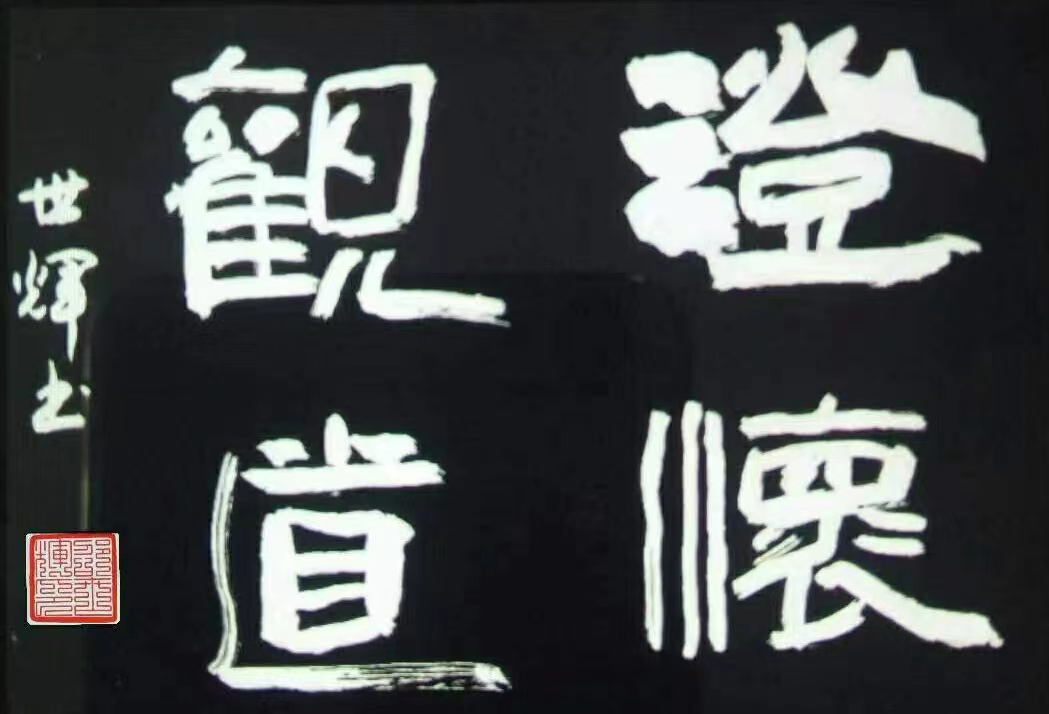 澄懷
觀道
世輝書